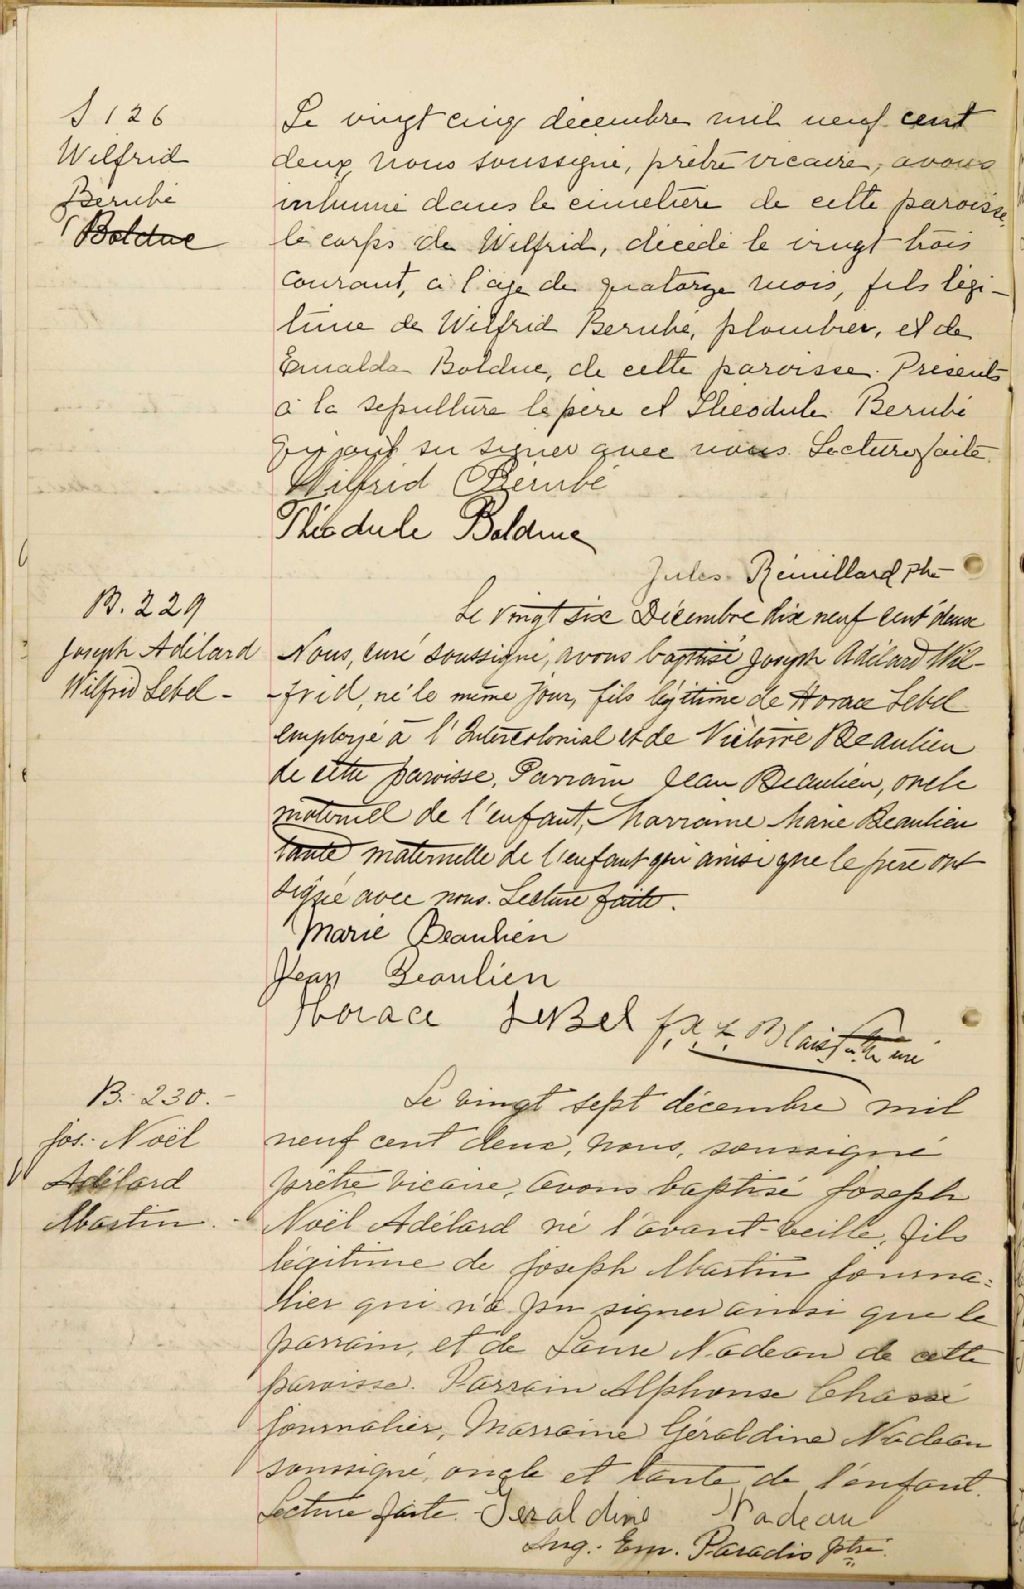 S 126
Wilfrid
Berubé
Bolduc
Le vingt cinq décembre mil neuf cent
deux, nous soussigné, prêtre vicaire, avons
inhumé dans le cimetière de cette paroisse
le corps de Wilfrid, décédé le vingt trois
courant, à l'age de quatorze mois, fils légi-
time de Wilfrid Berubé, plombier, et de
Bolduc, de cette paroisse. Présents
à la sepulture le père et Théodule Berubé
qui ont su signer avec nous. Lecture faite.
Wilfrid Bérubé
Théodule Bolduc
Jules Rémillard ptre
B. 229
Joseph Adélard
Wilfrid Lebel -
Le vingt six Décembre dix neuf cent deux
Nous, curé soussigné, avons baptisé Joseph Adélard Wil-
-frid, né le même jour, fils légitime de Horace Lebel
employé à l'Intercolonial et de Victoire Beaulieu
de cette paroisse. Parrain Jean Beaulieu, oncle
maternel de l'enfant, Marraine Marie Beaulieu
tante maternelle de l'enfant qui ainsi que le père ont
signé avec nous. Lecture faite.
Marie Beaulieu
Jean Beaulieu
Horace LeBel
Blais curé
B. 230. -
Jos. Noël
Adélard
Martin. -
Le vingt sept décembre mil
neuf cent deux, nous, soussigné
prêtre vicaire, avons baptisé Joseph
Noël Adélard né l'avant-veille, fils
légitime de Joseph Martin journa=
lier qui n'a pu signer ainsi que le
parrain, et de Laure Nadeau de cette
paroisse. Parrain Alphonse Chassé
journalier, Marraine Géraldine Nadeau
soussigné, oncle et tante de l'enfant.
Lecture faite. Geraldine Nadeau
Aug. Em. Paradis ptre.